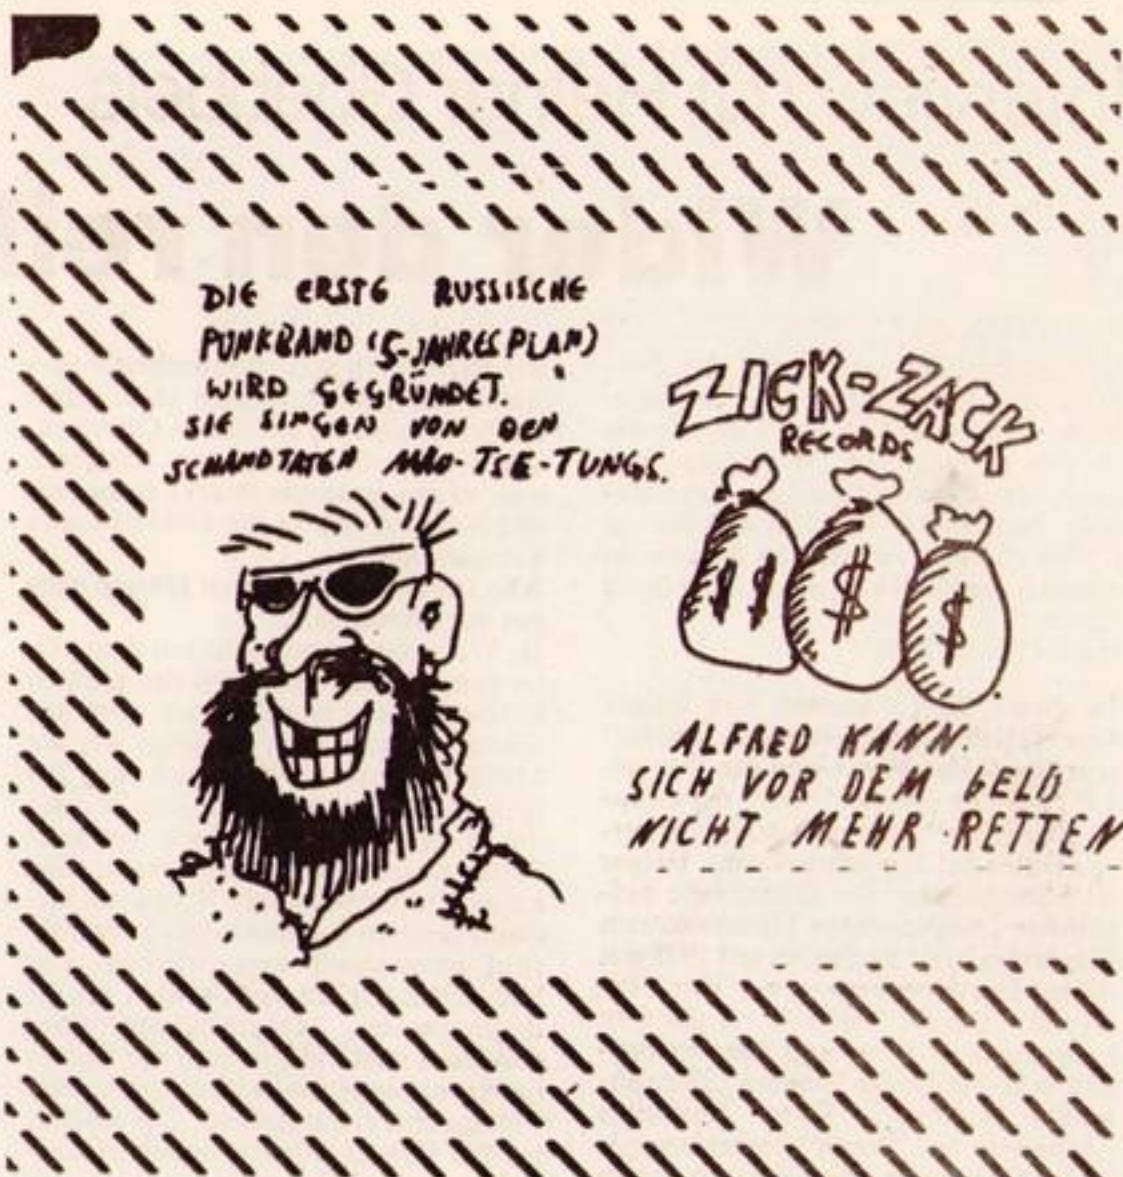 DIE ERSTE RUSSISCHE
PUNKBAND (5-JAHRESPLAN)
WIRD GEGRÜNDET.
SIE SINGEN VON DEN
SCHANDTATEN MAO-TSE-TUNGS.
ZICK-ZACK
RECORDS
$ $ $ $
ALFRED KANN
SICH VOR DEM GELD
NICHT MEHR RETTEN